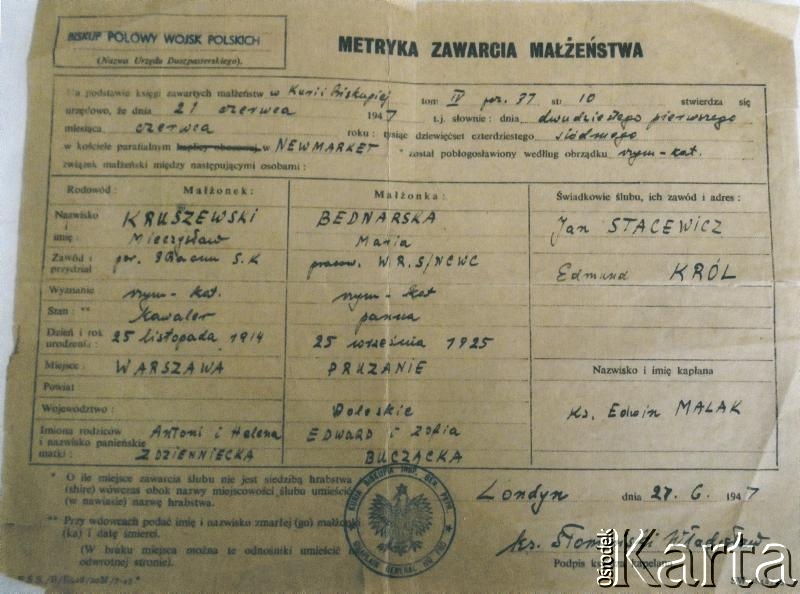 BISKUP POLOWY WOJSK POLSKICH
(Nazwa Urzędu Duszpasterskiego).
METRYKA ZAWARCIA MAŁŻEŃSTWA
Na podstawie księgi zawartych małżeństw w Kurii Biskupiej tom IV poz. 37 str 10 stwierdza się
urzędowo, że dnia 21 czerwca 1947 t.j. słownie: dnia dwudziestego pierwszego
miesiąca czerwca roku: tysiąc dziewięćset czterdziestego siódmego
w kościele parafialnym kaplicy obozowej w NEWMARKET * został pobłogosławiony według obrządku rzym-kat.
związek małżeński między następującymi osobami:
Rodowód: Małżonek: Małżonka: Świadkowie ślubu, ich zawód i adres:
Nazwisko i imię: KRUSZEWSKI Mieczysław BEDNARSKA Maria
Jan STACEWICZ
Zawód i przydział por. S.K pracow. W.R.S/NCWC
Edmund KRÓL
Wyznanie rzym-kat. rzym-kat
Stan: ** Kawaler panna
Dzień i rok urodzenia: 25 listopada 1914 25 września 1925
Miejsce: WARSZAWA PRUZANIE
Nazwisko i imię kapłana
Powiat
Województwo: Poleskie
Ks. Edwin MALAK
Imiona rodziców i nazwisko panieńskie matki: Antoni i Helena ZDZIENNIECKA EDWARD i Zofia BUCZACKA
* O ile miejsce zawarcia ślubu nie jest siedzibą hrabstwa
(shire) wówczas obok nazwy miejscowości ślubu umieścić
(w nawiasie) nazwę hrabstwa.
Londyn dnia 27.6. 1947
** Przy wdowcach podać imię i nazwisko zmarłej (go) małżonki
(ka) i datę śmierci.
(W braku miejsca można te odnośniki umieścić
odwrotnej stronie).
ks. Władysław
Podpis ks. kapelana
Ośrodek Karta